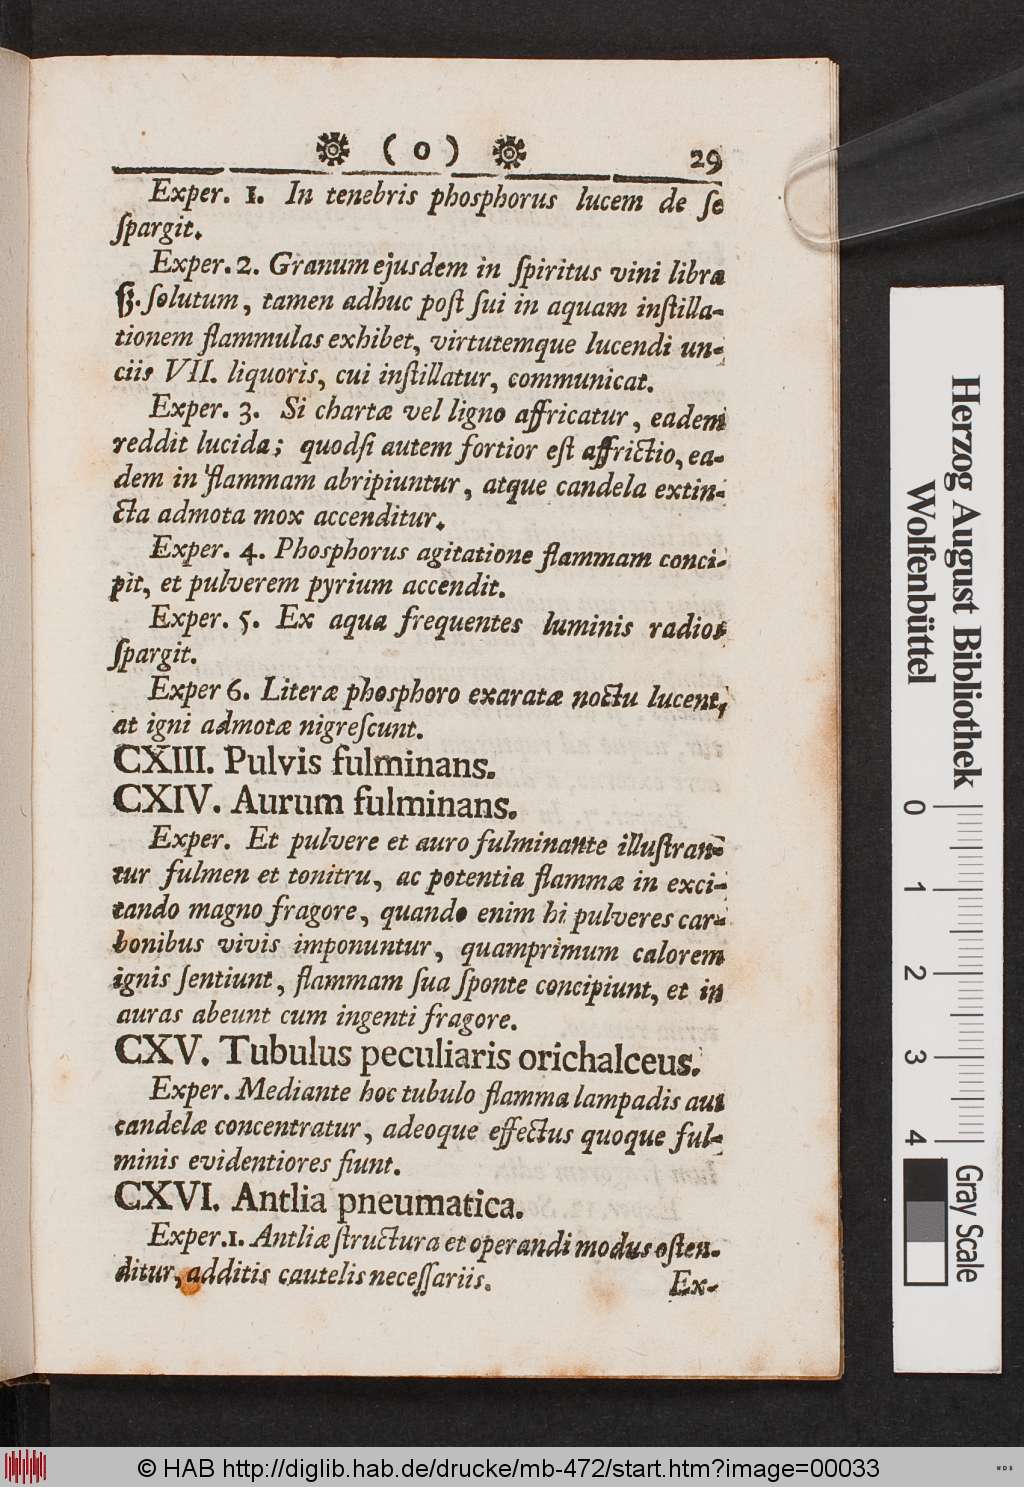 ( 0 ) 29
Exper. 1. In tenebris phosphorus lucem de ſe
ſpargit.
Exper. 2. Granum ejusdem in ſpiritus vini libra
ſolutum, tamen adhuc poſt ſui in aquam inſtilla-
tionem flammulas exhibet, virtutemque lucendi un-
ciis VII. liquoris, cui inſtillatur, communicat.
Exper. 3. Si chartæ vel ligno affricatur, eadem
reddit lucida; quodſi autem fortior eſt affrictio, ea-
dem in flammam abripiuntur, atque candela extin-
cta admota mox accenditur.
Exper. 4. Phosphorus agitatione flammam conci-
pit, et pulverem pyrium accendit.
Exper. 5. Ex aqua frequentes luminis radios
ſpargit.
Exper 6. Literæ phosphoro exaratæ noctu lucent,
at igni admotæ nigreſcunt.
CXIII. Pulvis fulminans.
CXIV. Aurum fulminans.
Exper. Et pulvere et auro fulminante illuſtran-
tur fulmen et tonitru, ac potentia flammæ in exci-
tando magno fragore, quando enim hi pulveres car-
bonibus vivis imponuntur, quamprimum calorem
ignis ſentiunt, flammam ſua ſponte concipiunt, et in
auras abeunt cum ingenti fragore.
CXV. Tubulus peculiaris orichalceus.
Exper. Mediante hoc tubulo flamma lampadis aut
candelæ concentratur, adeoque effectus quoque ful-
minis evidentiores fiunt.
CXVI. Antlia pneumatica.
Exper. 1. Antliæ ſtructura et operandi modus oſten-
ditur, additis cautelis neceſſariis.
Ex-
Herzog August Bibliothek
Wolfenbüttel
0 1 2 3 4
Gray Scale
© HAB http://diglib.hab.de/drucke/mb-472/start.htm?image=00033